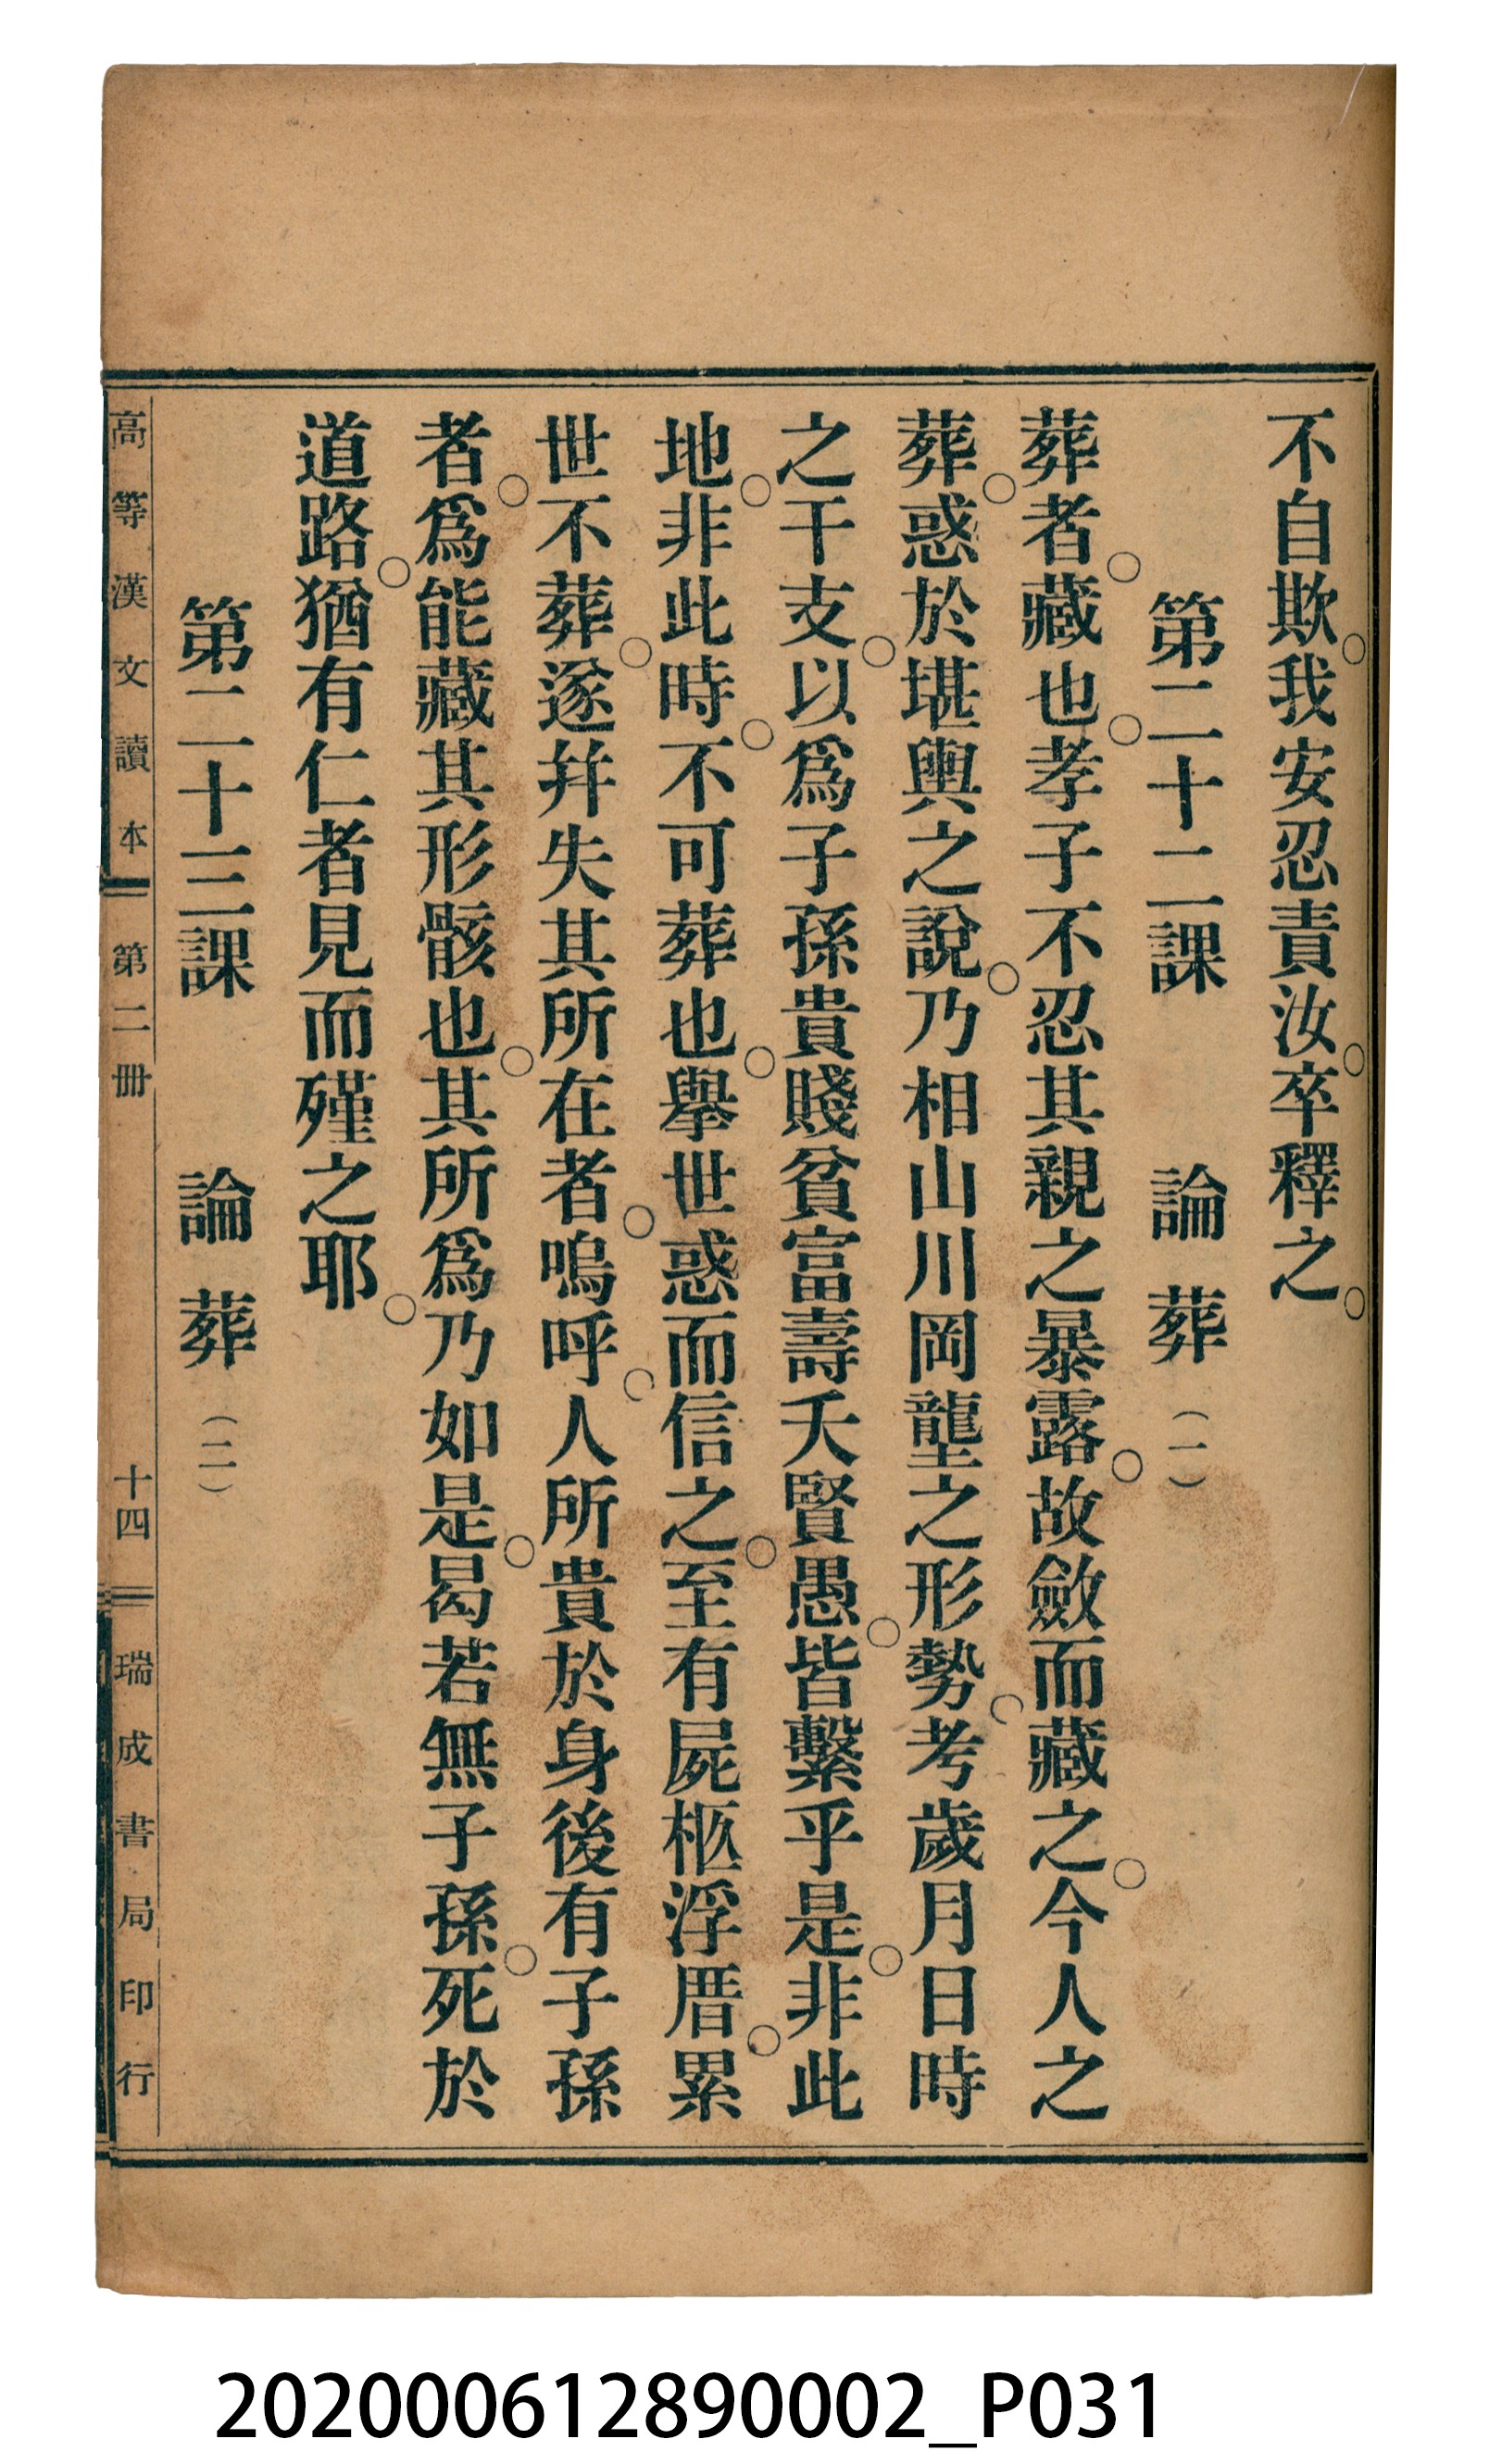 不自欺。我安忍責汝。卒釋之。
第二十二課 論葬（一）
葬者。藏也。孝子不忍其親之暴露。故斂而藏之。今人之
葬。惑於堪輿之說。乃相山川岡壟之形勢。考歲月日時
之干支。以爲子孫貴賤貧富壽夭賢愚。皆繫乎是。非此
地。非此時。不可葬也。舉世惑而信之。至有屍柩浮厝。累
世不葬。遂幷失其所在者。嗚呼。人所貴於身後有子孫
者。爲能藏其形骸也。其所爲乃如是。曷若無子孫。死於
道路。猶有仁者見而殣之耶。
第二十三課 論葬（二）
高等漢文讀本 第二册 十四 瑞成書局印行
202000612890002_P031